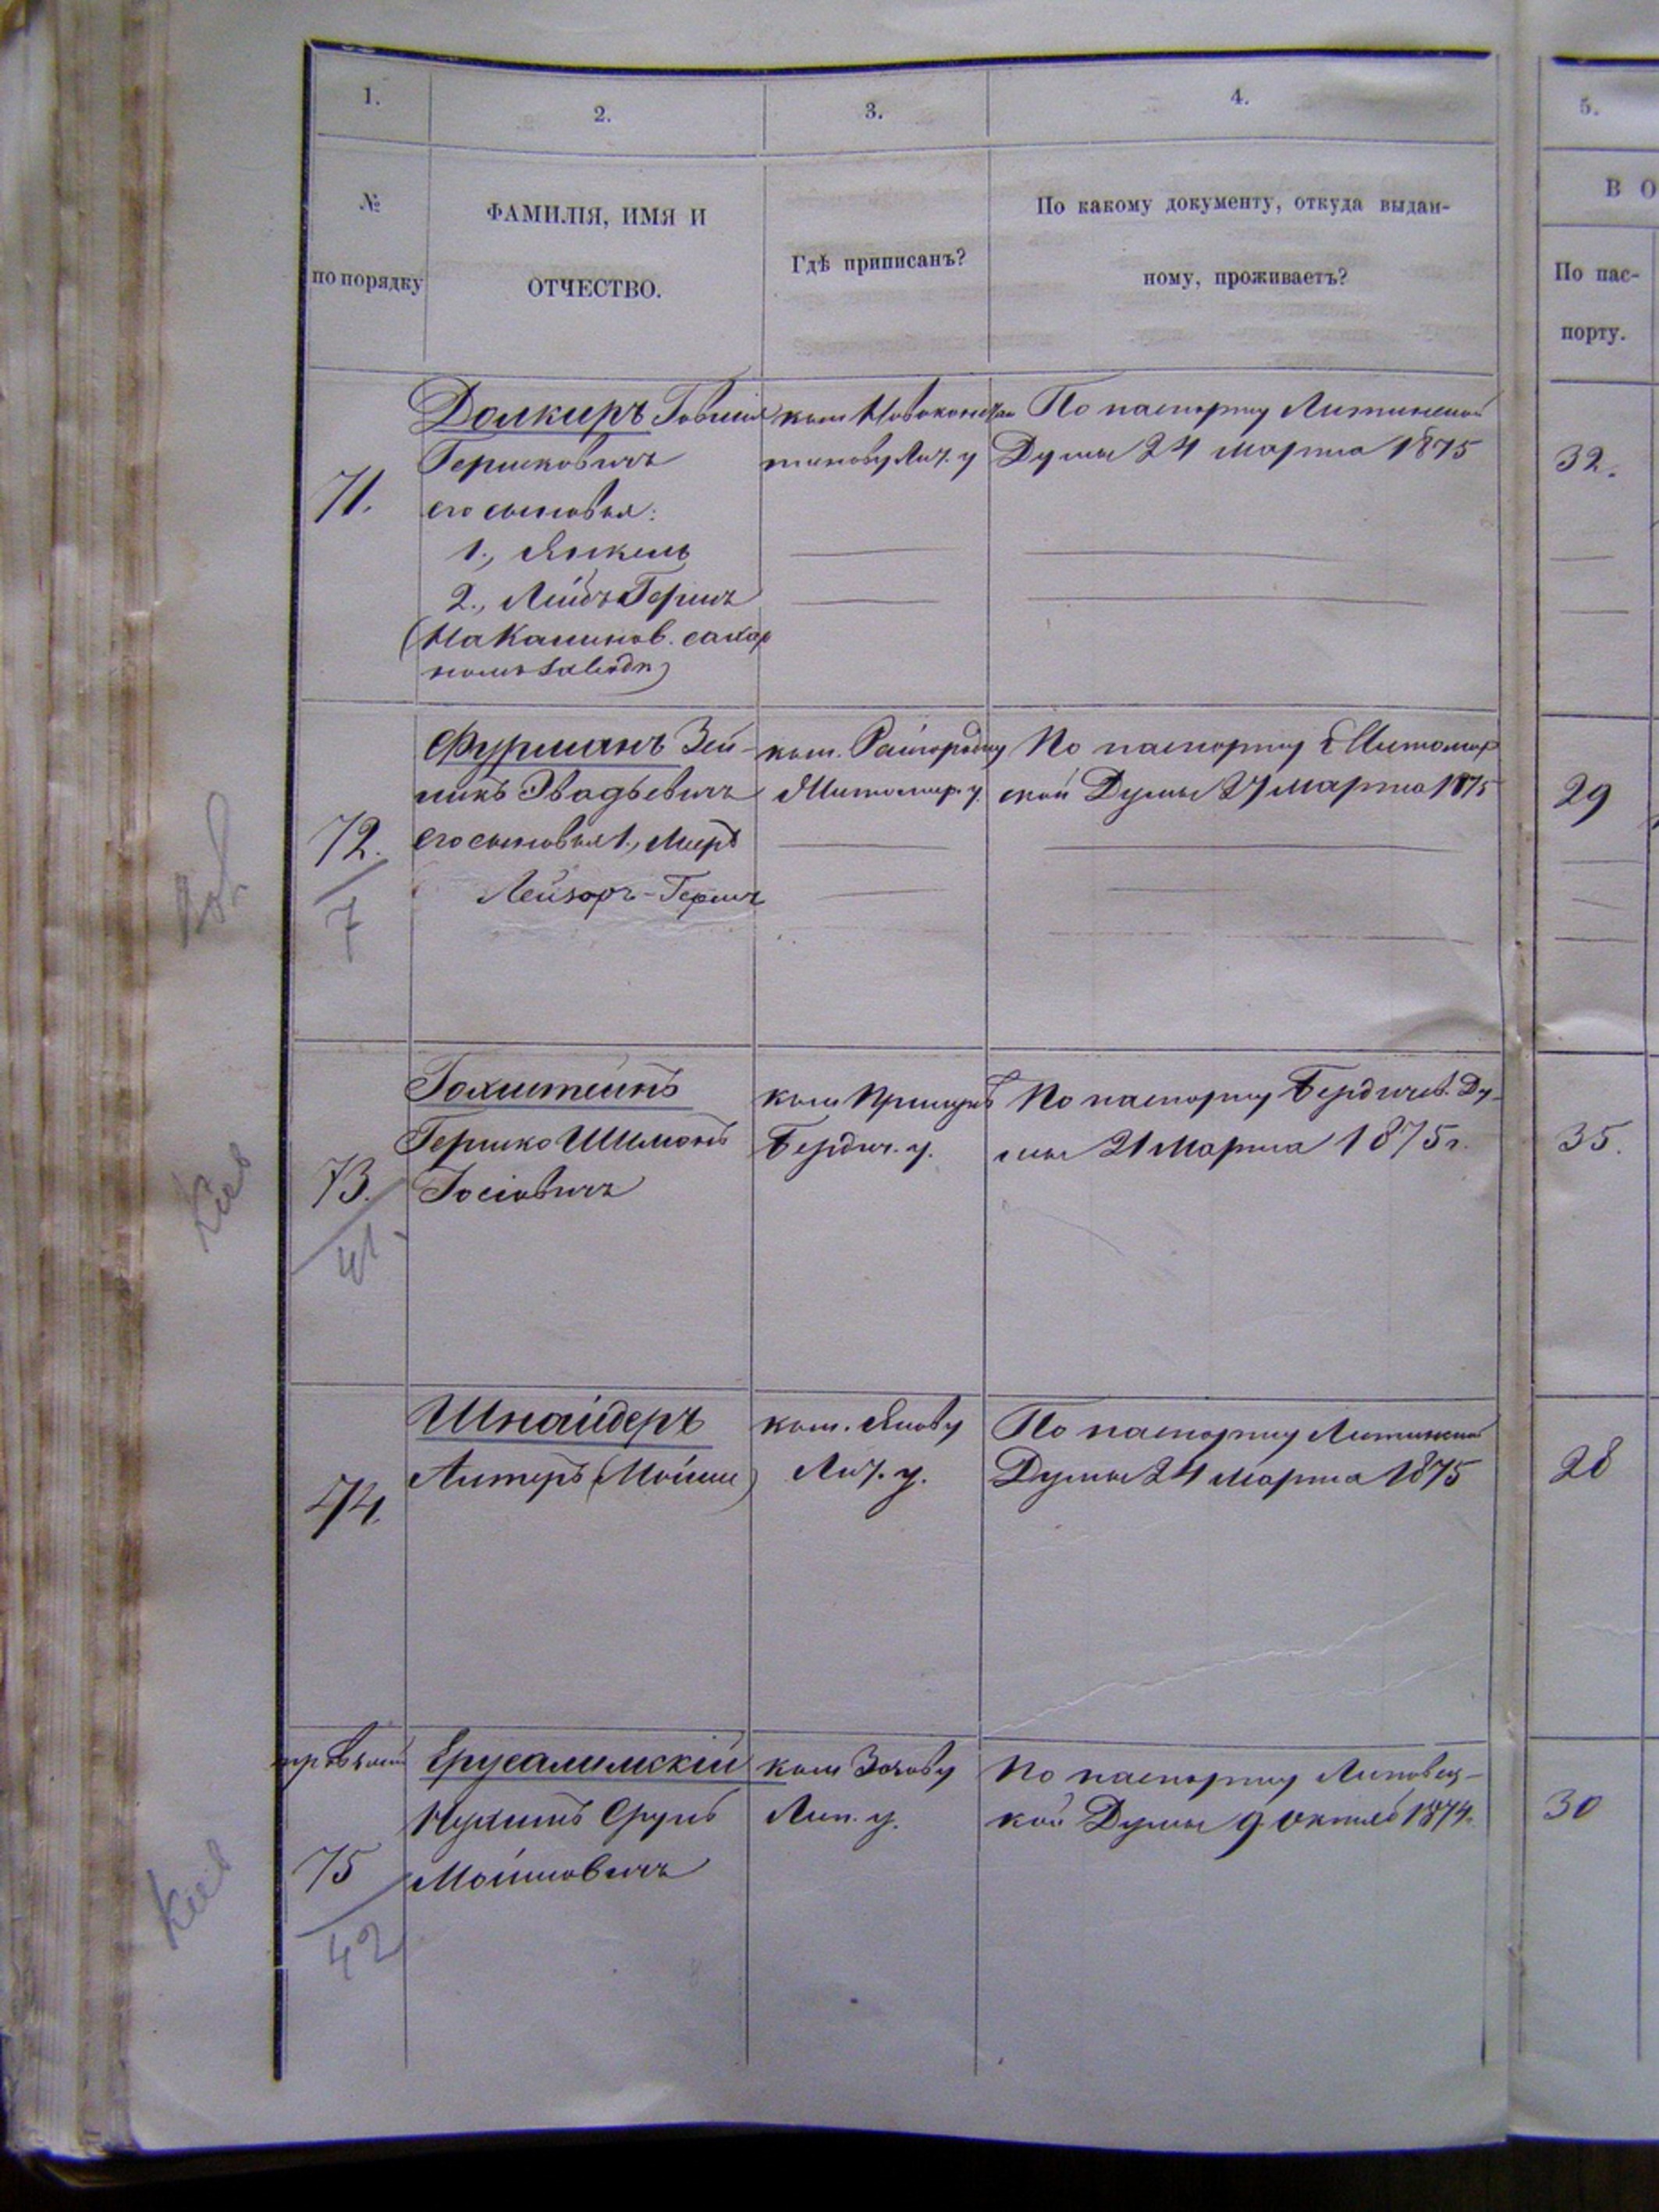 1.
2.
3.
4.
5.
№
по порядку
ФАМИЛІЯ, ИМЯ И
ОТЧЕСТВО.
Гдѣ приписанъ?
По какому документу, откуда выдан-
ному, проживаетъ?
В О
По пас-
порту.
71.
Долкиръ
Гершковичъ
его сыновья:
1., Янкель
2., Лейбъ Гершъ
(На Калинов. сахар
номъ заводѣ)
По паспорту Литинской
Думы 24 марта 1875
32.
72.
7
Фурманъ Зей-
его сыновья 1., Мееръ
Лейзоръ-Гершъ
кош. Райгородку
Житомир. у.
По паспорту Житомир
ской Думы 27 марта 1875
29
73.
41.
Гохштейнъ
Гершко Шимонъ
Іосіовичъ
Бердич. у.
По паспорту Бердичев. Ду-
мы 21 Марта 1875 г.
35.
74.
Шнайдеръ
Алтеръ (Мойше)
кош. Янову
Лит. у.
По паспорту Литинской
Думы 24 Марта 1875
28
75
42
Ерусалимскій
Нухимъ Сруль
Мошковичъ
Лип. у.
По паспорту Липовец-
кой Думы 9 Октяб 1874.
30
Кіев
Кіев